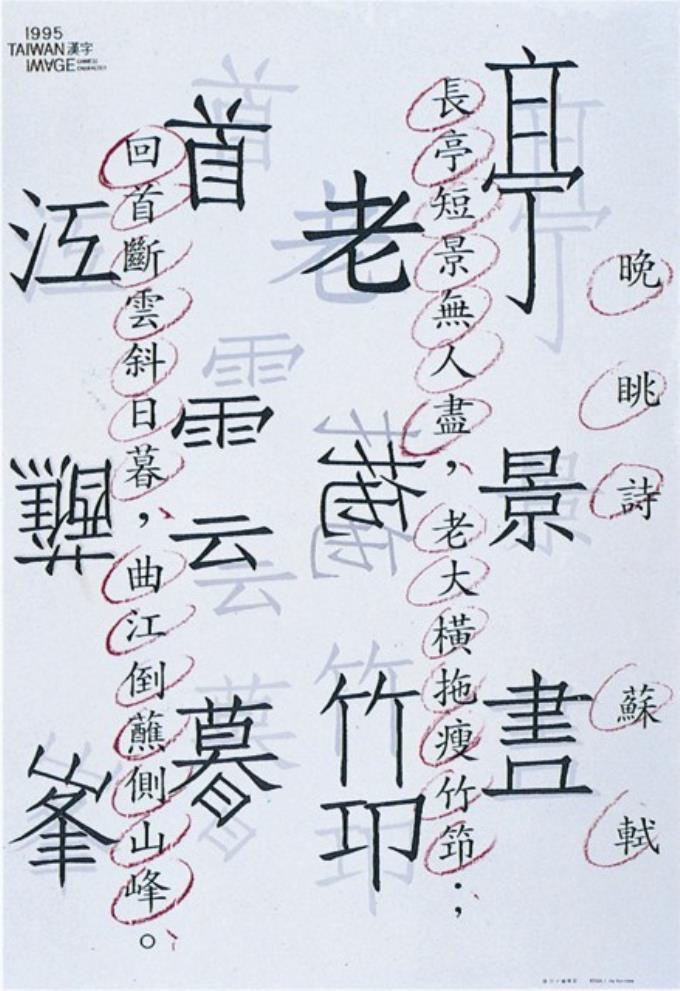 1995
TAIWAN 漢字
IMAGE CHINESE CHARACTER
晚眺詩 蘇軾
亭 景
長亭短景無人盡，老大橫拖瘦竹筇；
老 拖 筇
首 雲 暮
回首斷雲斜日暮，曲江倒蘸側山峰。
江 蘸 峯